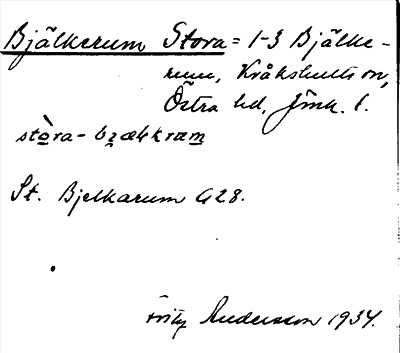 Bjälkerum Stora = 1-3 Bjälke-
rum, Kråkshults sn,
Östra hd, Jönk. l.
stòra-bæḷkram
St. Bjelkarum G 28.
Fritz Andersson 1934.